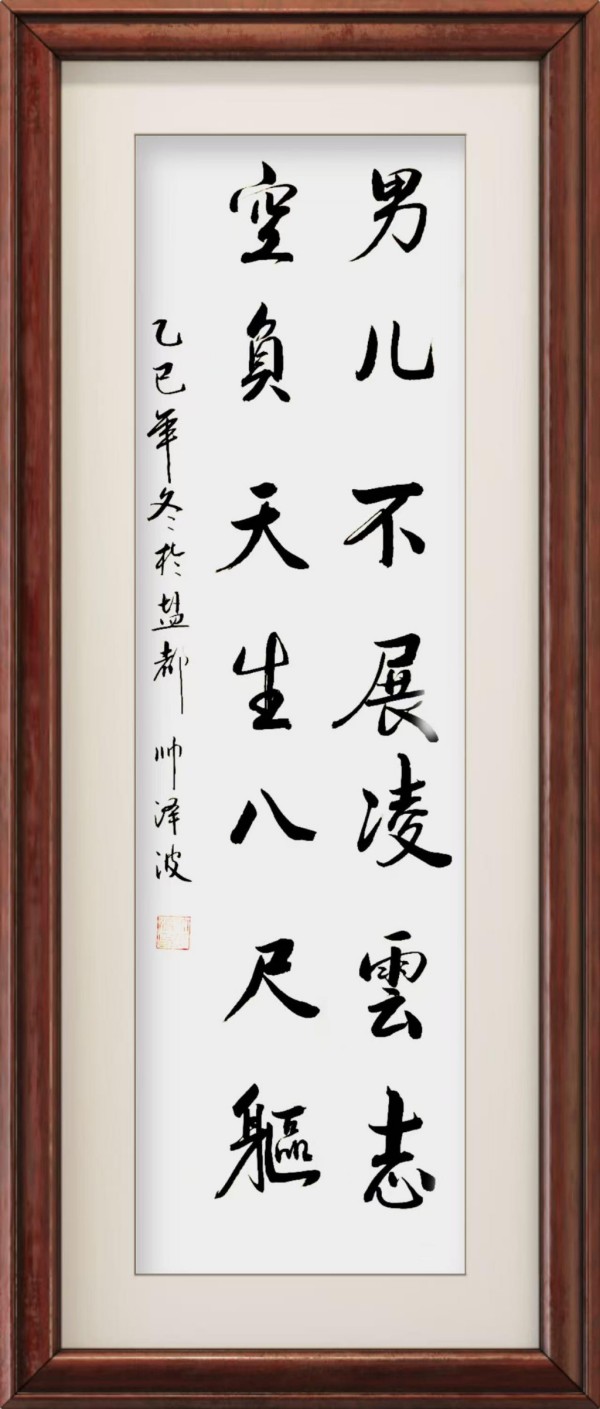 男儿不展凌雲志
空負天生八尺軀
乙巳年冬於盐都 帅泽波